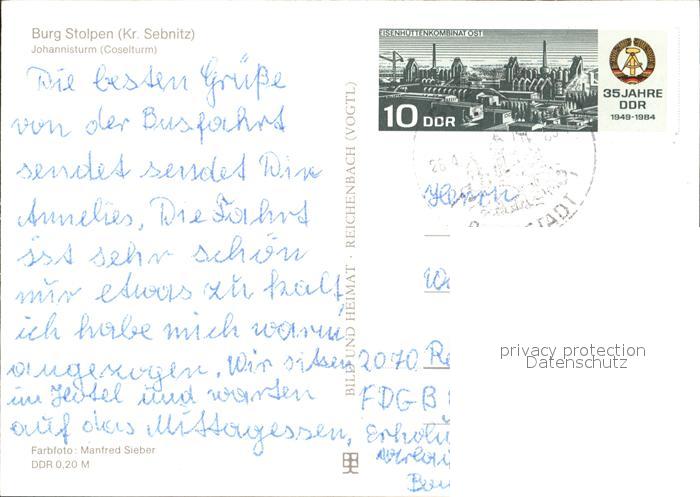 Burg Stolpen (Kr. Sebnitz)
Johannisturm (Coselturm)
Die besten Grüße
von der Busfahrt
sendet sendet Din
Annelies, Die Fahrt
ist sehr schön
nur etwas zu kalt,
ich habe mich warm
angezogen. Wir sitzen
im Hotel und warten
auf das Mittagessen,
Farbfoto: Manfred Sieber
DDR 0,20 M
BILD UND HEIMAT · REICHENBACH (VOGTL)
EISENHÜTTENKOMBINAT OST
10 DDR
35 JAHRE
DDR
1949-1984
STADT
Herrn
2070 Rö
FDGB
Erholu
privacy protection
Datenschutz